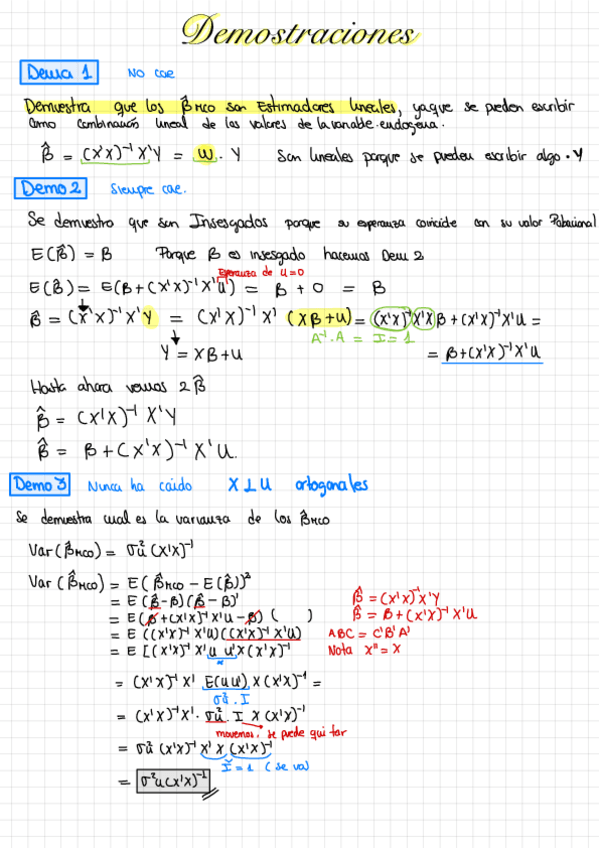 Demostraciones
Demo 1 NO cae
Demuestra que los β̂MCO son Estimadores lineales, ya que se pueden escribir
como combinación lineal de los valores de la variable endogena.
β̂ = (X'X)⁻¹ X'Y = W · Y Son lineales porque se pueden escribir algo · Y
Demo 2 Siempre cae.
Se demuestra que son Insesgados porque su esperanza coincide con su valor Poblacional
E(β̂) = B Porque B es insesgado hacemos Dem 2
Esperanza de U=0
E(β̂) = E(B + (X'X)⁻¹ X'U) = B + 0 = B
β̂ = (X'X)⁻¹ X'Y = (X'X)⁻¹ X' (XB+U) = (X'X)⁻¹ X'X B + (X'X)⁻¹ X'U =
A⁻¹·A = I = 1
Y = XB+U = B+(X'X)⁻¹ X'U
Hasta ahora vemos 2 β̂
β̂ = (X'X)⁻¹ X'Y
β̂ = B + (X'X)⁻¹ X'U.
Demo 3 Nunca ha caido X ⊥ U ortogonales
Se demuestra cual es la varianza de los β̂MCO
Var(β̂MCO) = σ²u (X'X)⁻¹
Var(β̂MCO) = E(β̂MCO - E(β̂))²
= E(β̂-B)(β̂-B)' β̂ = (X'X)⁻¹X'Y
= E(B+(X'X)⁻¹ X'U-B) ( ) β̂ = B+(X'X)⁻¹X'U
= E((X'X)⁻¹ X'U)((X'X)⁻¹ X'U) ABC = C'B'A'
= E[(X'X)⁻¹ X'U U'X(X'X)⁻¹ Nota X'' = X
= (X'X)⁻¹ X' E(UU') X(X'X)⁻¹ =
σ²u · I
= (X'X)⁻¹X' · σ²u · I X (X'X)⁻¹
movemos. se puede quitar
= σ²u (X'X)⁻¹ X'X (X'X)⁻¹
I = 1 (se va)
= σ²u(X'X)⁻¹